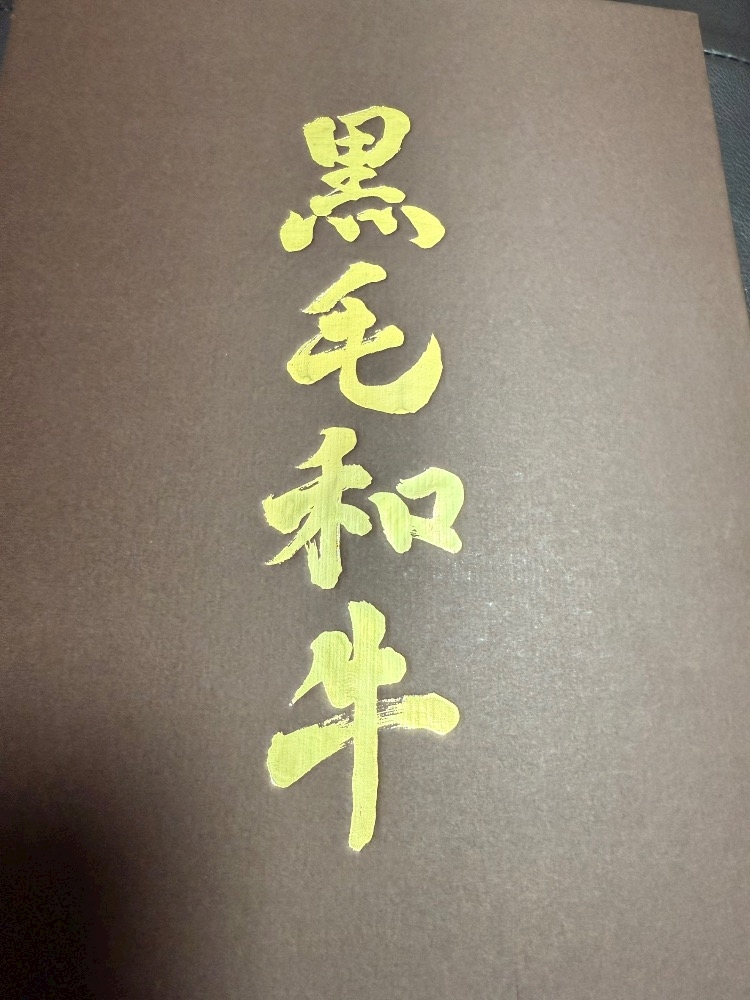 黒毛和牛